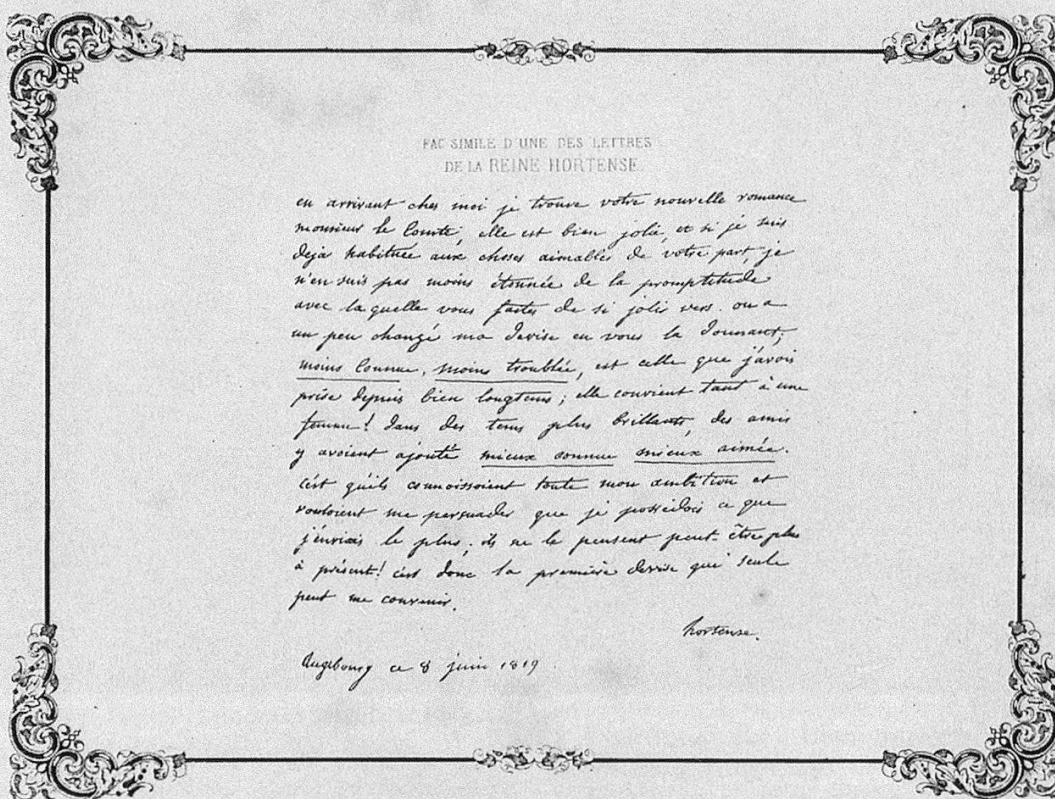 FAC SIMILE D'UNE DES LETTRES
DE LA REINE HORTENSE.
en arrivant ches moi je trouve votre nouvelle romance
monsieur le Comte; elle est bien jolie, et si je suis
deja habituée aux choses aimables de votre part, je
n'en suis pas moins étonnée de la promptitude
avec la quelle vous faites de si jolis vers. on a
un peu changé ma devise en vous la donnant;
moins connue, moins troublée, est celle que j'avois
prise depuis bien longtems; elle convient tant à une
femme! dans des tems plus brillants, des amis
y avoient ajouté mieux connue mieux aimée.
c'est qu'ils connoissoient toute mon ambition et
vouloient me persuader que je possédois ce que
j'enviais le plus; ils ne le pensent peut-être plus
à présent! c'est donc la première devise qui seule
peut me convenir.
hortense.
Augsbourg ce 8 juin 1819